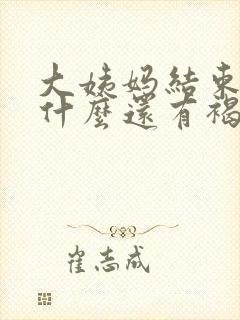 大姨妈結束
什麼還有褐
崔志成